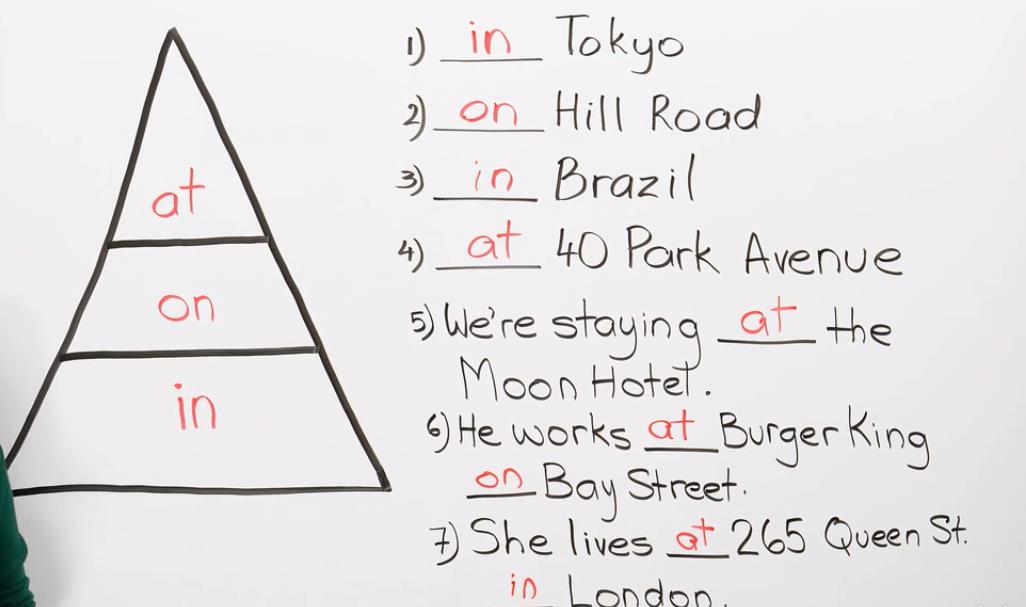 at
on
in
1) in Tokyo
2) on Hill Road
3) in Brazil
4) at 40 Park Avenue
5) We're staying at the
Moon Hotel.
6) He works at Burger King
on Bay Street.
7) She lives at 265 Queen St.
in London.